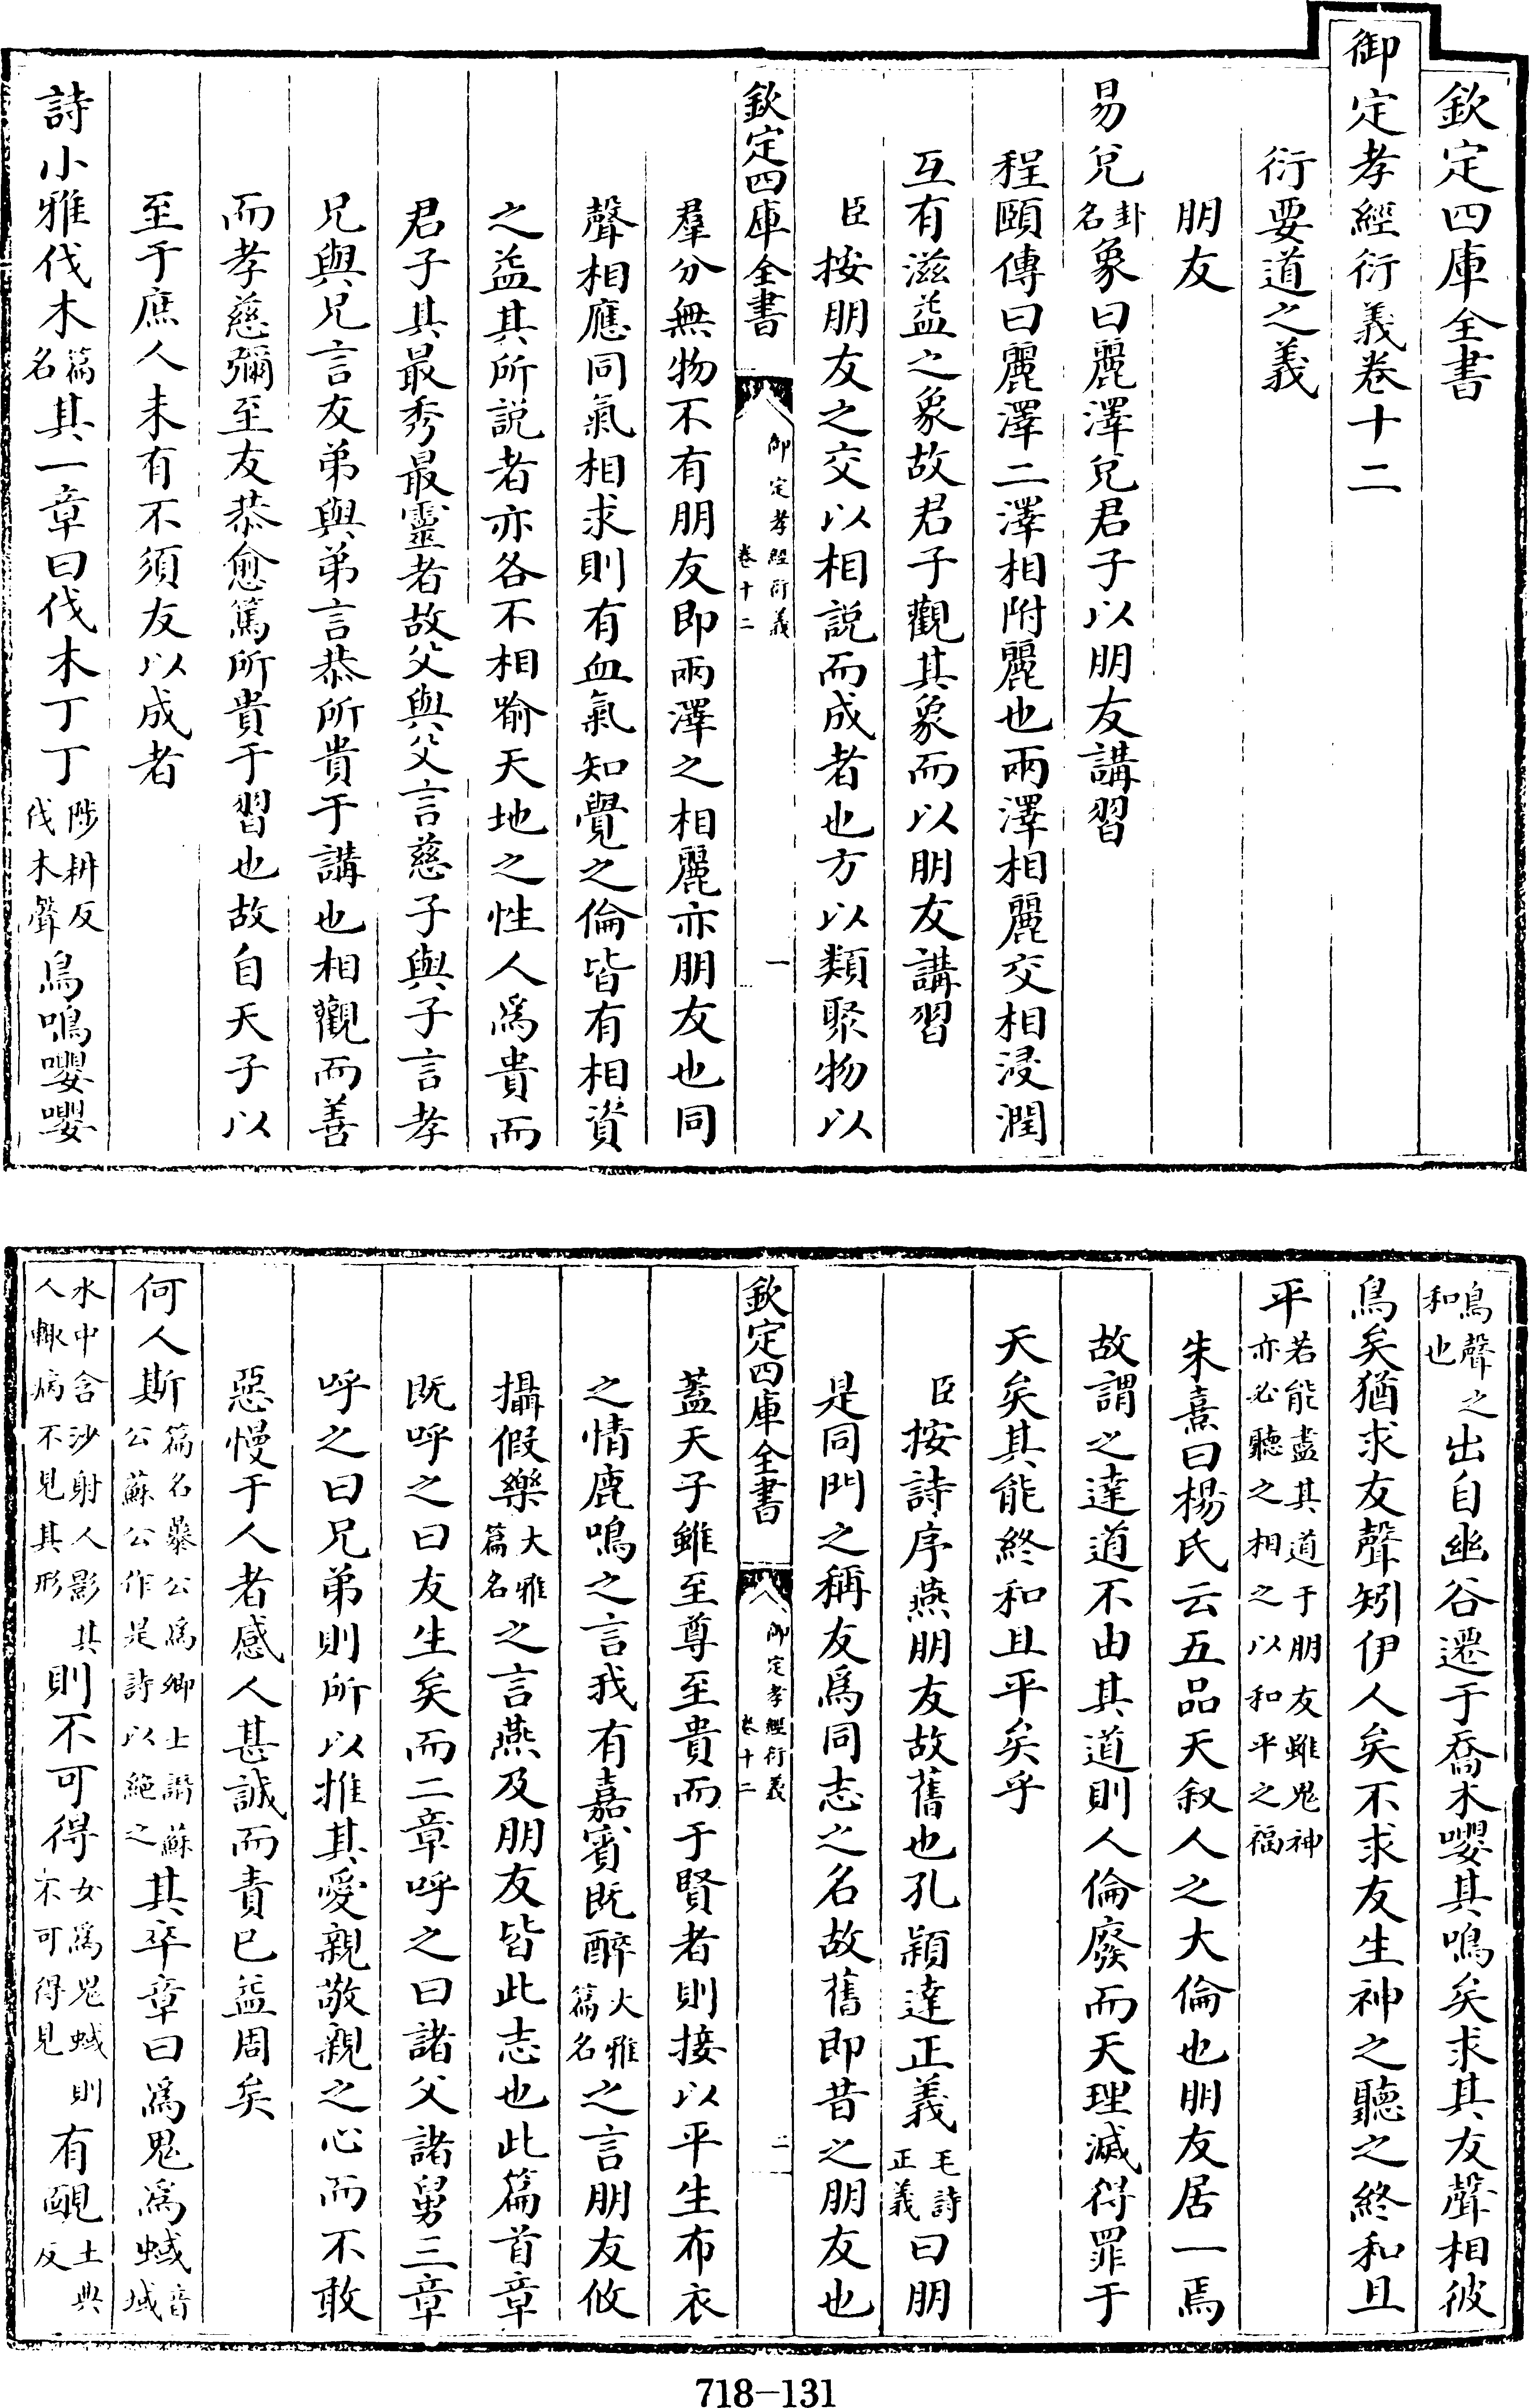 欽定四庫全書
御定孝經衍義卷十二
衍要道之義
朋友
易兌卦名象曰麗澤兌君子以朋友講習
程頤傳曰麗澤二澤相附麗也兩澤相麗交相浸潤
互有滋益之象故君子觀其象而以朋友講習
臣按朋友之交以相説而成者也方以類聚物以
欽定四庫全書
御定孝經衍義
卷十二
一
羣分無物不有朋友即兩澤之相麗亦朋友也同
聲相應同氣相求則有血氣知覺之倫皆有相資
之益其所説者亦各不相喻天地之性人爲貴而
君子其最秀最靈者故父與父言慈子與子言孝
兄與兄言友弟與弟言恭所貴于講也相觀而善
而孝慈彌至友恭愈篤所貴于習也故自天子以
至于庶人未有不須友以成者
詩小雅伐木篇名其一章曰伐木丁丁陟耕反伐木聲鳥鳴嚶嚶
鳥聲之和也出自幽谷遷于喬木嚶其鳴矣求其友聲相彼
鳥矣猶求友聲矧伊人矣不求友生神之聽之終和且
平若能盡其道于朋友雖鬼神亦必聽之相之以和平之福
朱熹曰楊氏云五品天叙人之大倫也朋友居一焉
故謂之達道不由其道則人倫廢而天理滅得罪于
天矣其能終和且平矣乎
臣按詩序燕朋友故舊也孔穎達正義毛詩正義曰朋
是同門之稱友爲同志之名故舊即昔之朋友也
欽定四庫全書
御定孝經衍義
卷十二
二
蓋天子雖至尊至貴而于賢者則接以平生布衣
之情鹿鳴之言我有嘉賓既醉大雅篇名之言朋友攸
攝假樂大雅篇名之言燕及朋友皆此志也此篇首章
既呼之曰友生矣而二章呼之曰諸父諸舅三章
呼之曰兄弟則所以推其愛親敬親之心而不敢
惡慢于人者感人甚誠而責已益周矣
何人斯篇名暴公爲卿士譖蘇公蘇公作是詩以絕之其卒章曰爲鬼爲蜮音域
水中含沙射人影其人輙病不見其形則不可得女爲鬼蜮則不可得見有靦土典反
718-131